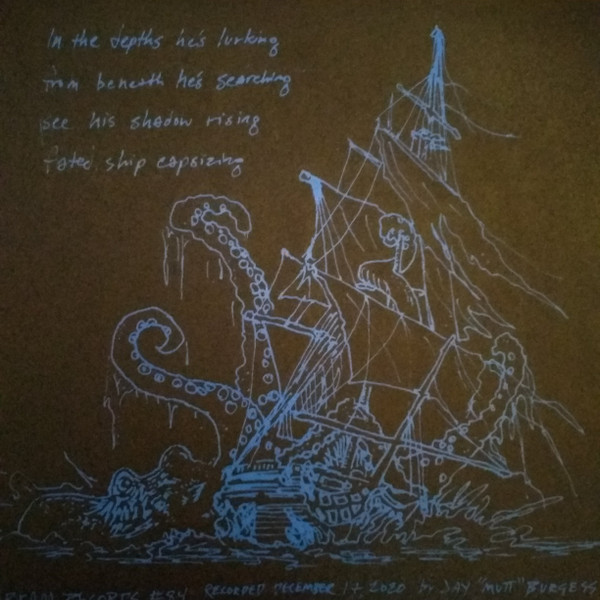 In the depths he's lurking
from beneath he's searching
see his shadow rising
fated ship capsizing
RECORDED DECEMBER 17 2020 by JAY "MUTT" BURGESS